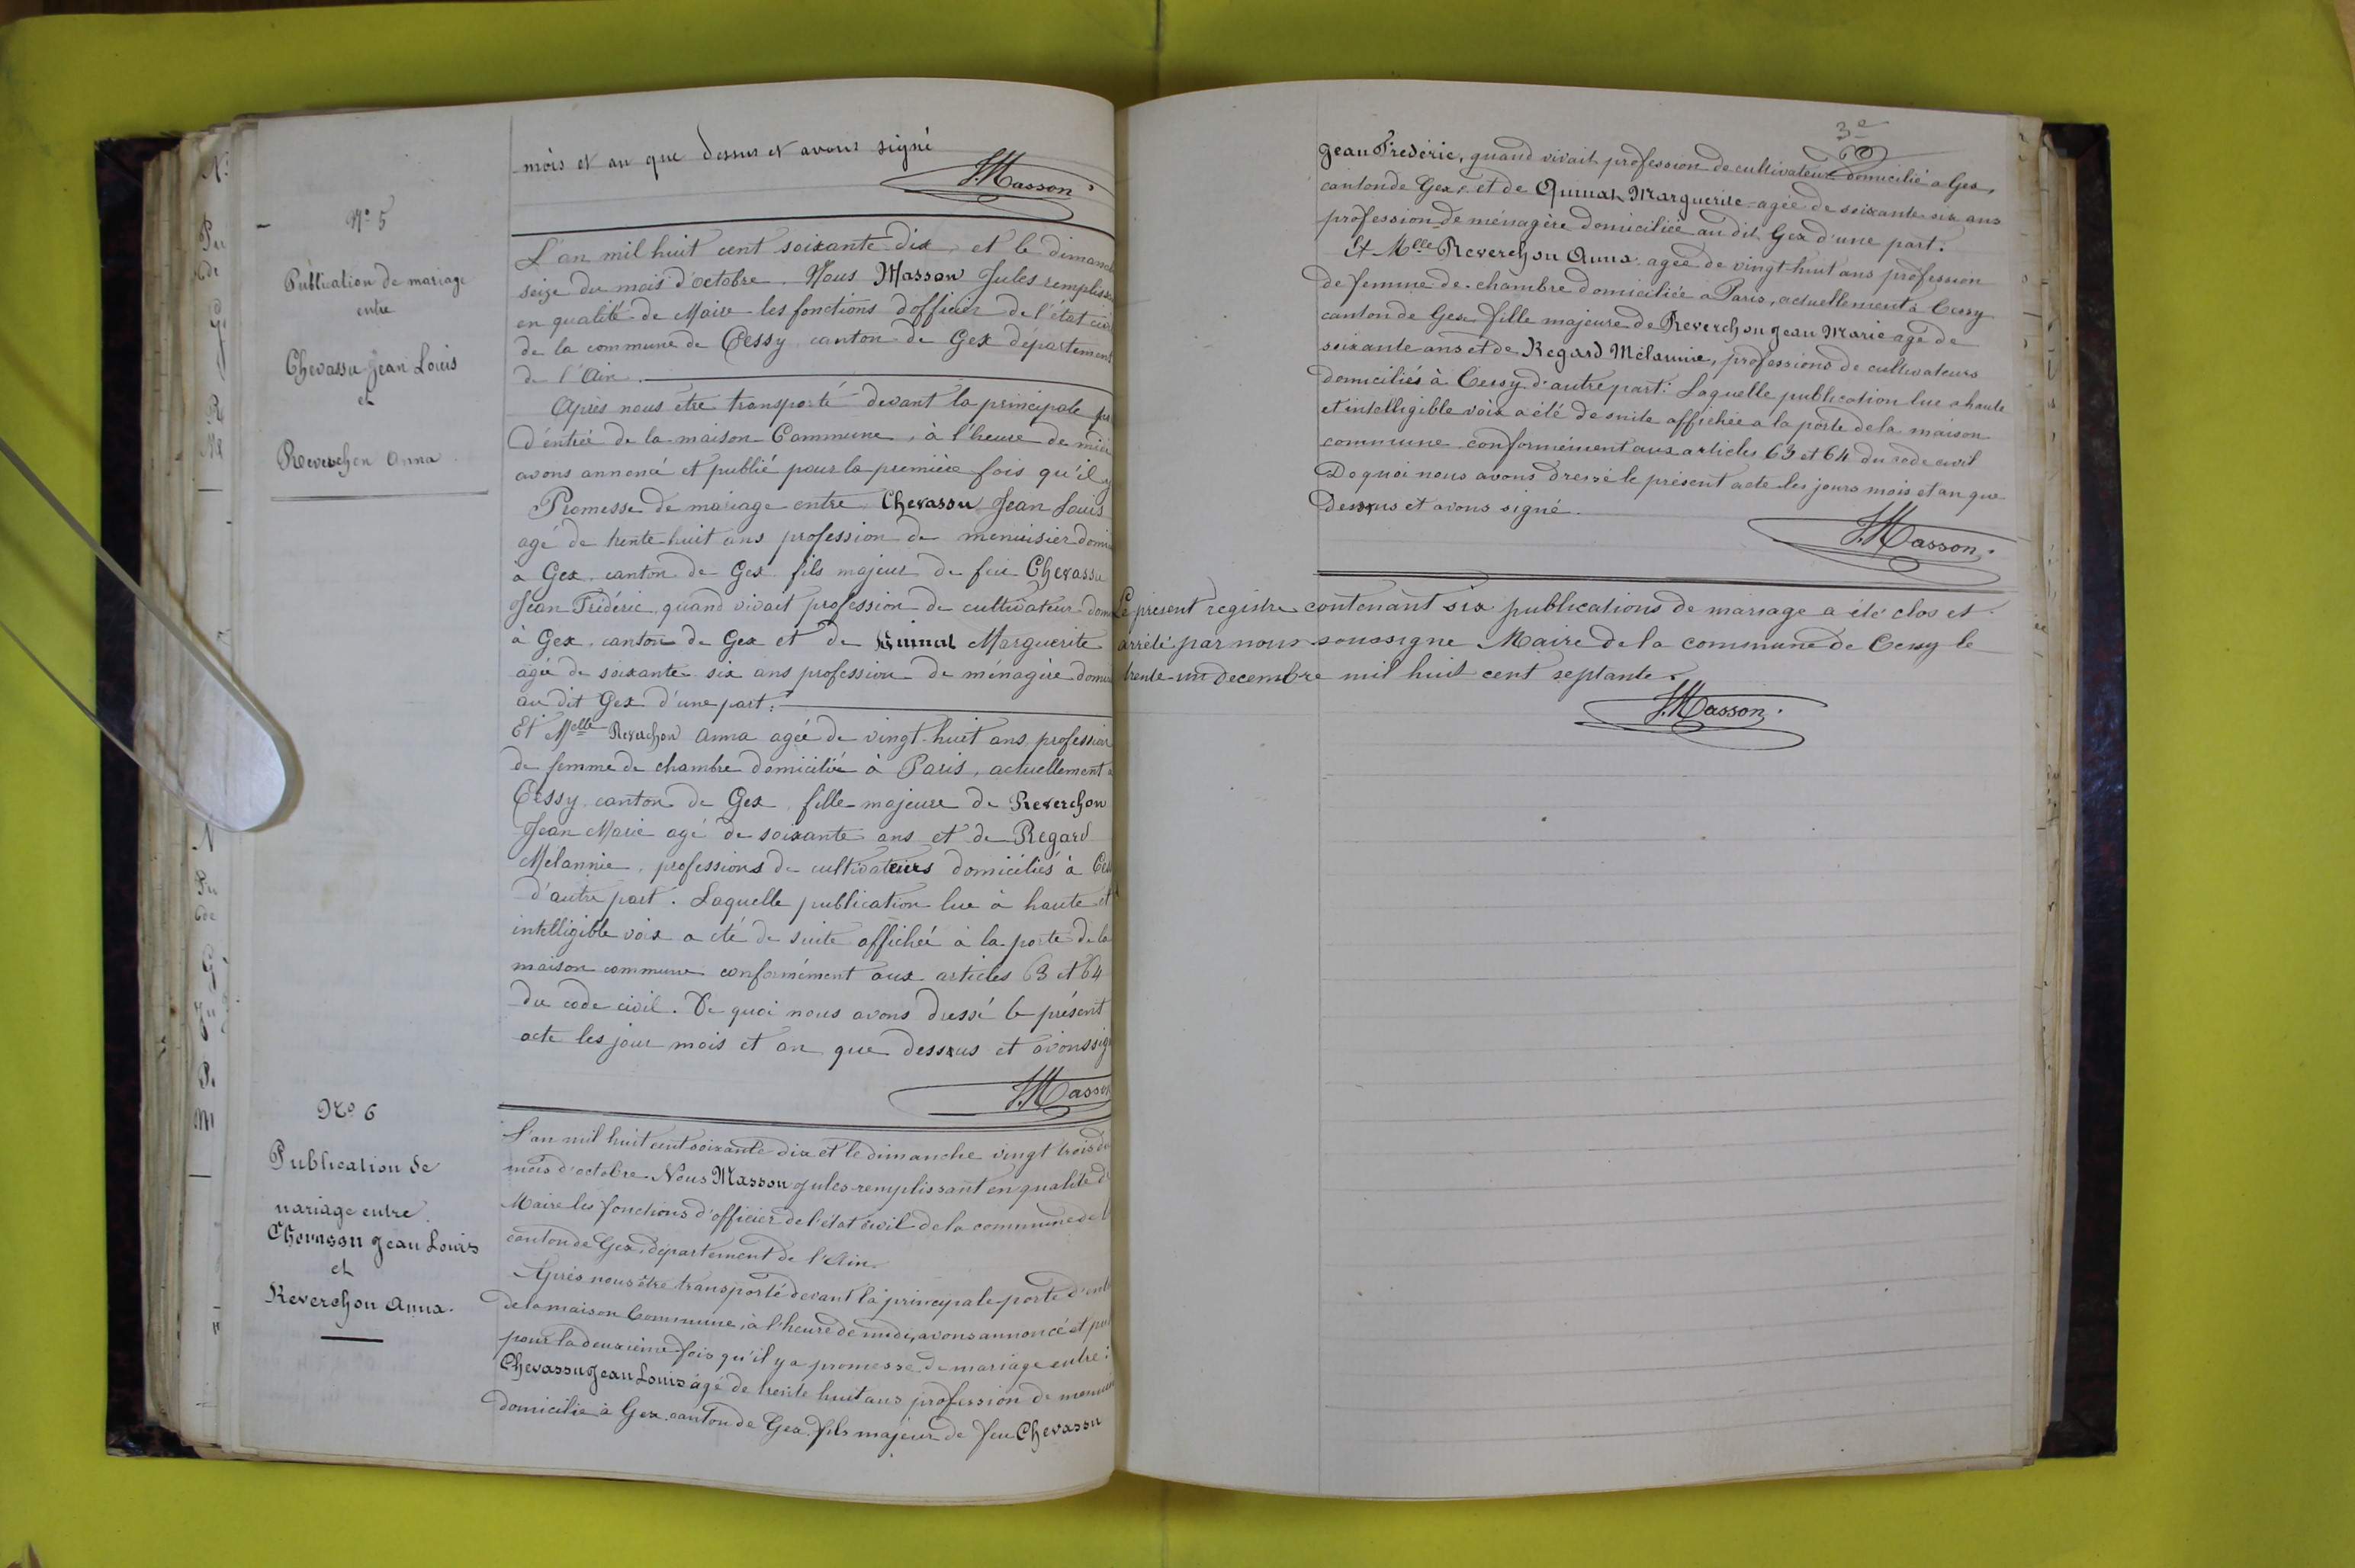 mois et an que dessus et avons signé
J. Masson
N° 5
Publication de mariage
entre
Chevassu Jean Louis
et
Reverchon Anna
L'an mil huit cent soixante dix, et le dimanche
seize du mois d'octobre. Nous Masson Jules remplissant
en qualité de Maire les fonctions d'officier de l'état civil
de la commune de Cessy canton de Gex département
de l'Ain.
Après nous être transporté devant la principale
d'entrée de la maison Commune, à l'heure de midi
avons annoncé et publié pour la première fois qu'il y
Promesse de mariage entre Chevassu Jean Louis
agé de trente huit ans profession de menuisier
à Gex, canton de Gex fils majeur de feu Chevassu
Jean Fréderic, quand vivait profession de cultivateur
à Gex, canton de Gex et de Marguerite
agée de soixante six ans profession de ménagère
au dit Gex d'une part.
Et Melle Reverchon Anna agée de vingt-huit ans, profession
de femme de chambre domiciliée à Paris, actuellement à
Cessy, canton de Gex, fille majeure de Reverchon
Jean Marie agé de soixante ans et de Regard
Mélannie, professions de cultivateurs domiciliés à
d'autre part. Laquelle publication lue à haute et
intelligible voix a été de suite affichée à la porte de la
maison commune conformément aux articles 63 et 64
du code civil. De quoi nous avons dressé le présent
acte les jour mois et an que dessus et avons
J. Masson
N° 6
Publication de
mariage entre
Chevassu Jean Louis
et
Reverchon Anna.
L'an mil huit cent soixante dix et le dimanche vingt trois du
mois d'octobre. Nous Masson Jules remplissant en qualité de
Maire les fonctions d'officier de l'état civil de la commune de
canton de Gex, département de l'Ain.
Après nous être transporté devant la principale porte
de la maison Commune, à l'heure de midi, avons annoncé et
pour la deuxième fois qu'il y a promesse de mariage entre:
Chevassu Jean Louis âgé de trente huit ans profession de
domicilié à Gex canton de Gex, fils majeur de feu Chevassu
3e
Jean Fréderic, quand vivait profession de cultivateur domicilié a Gex,
canton de Gex, et de Marguerite agée de soixante six ans
profession de ménagère domiciliée au dit Gex d'une part.
Et Melle Reverchon Anna agée de vingt-huit ans profession
de femme de chambre domiciliée a Paris, actuellement à Cessy
canton de Gex, fille majeure de Reverchon Jean Marie agé de
soixante ans et de Regard Mélannie, professions de cultivateurs
domiciliés à Cessy d'autre part. Laquelle publication lue a haute
et intelligible voix a été de suite affichée a la porte de la maison
commune conformément aux articles 63 et 64 du code civil
De quoi nous avons dressé le présent acte les jours mois et an que
dessus et avons signé.
J. Masson.
Le présent registre contenant six publications de mariage a été clos et
arrété par nous soussigne Maire de la commune de Cessy le
trente-un decembre mil huit cent septante.
J. Masson.